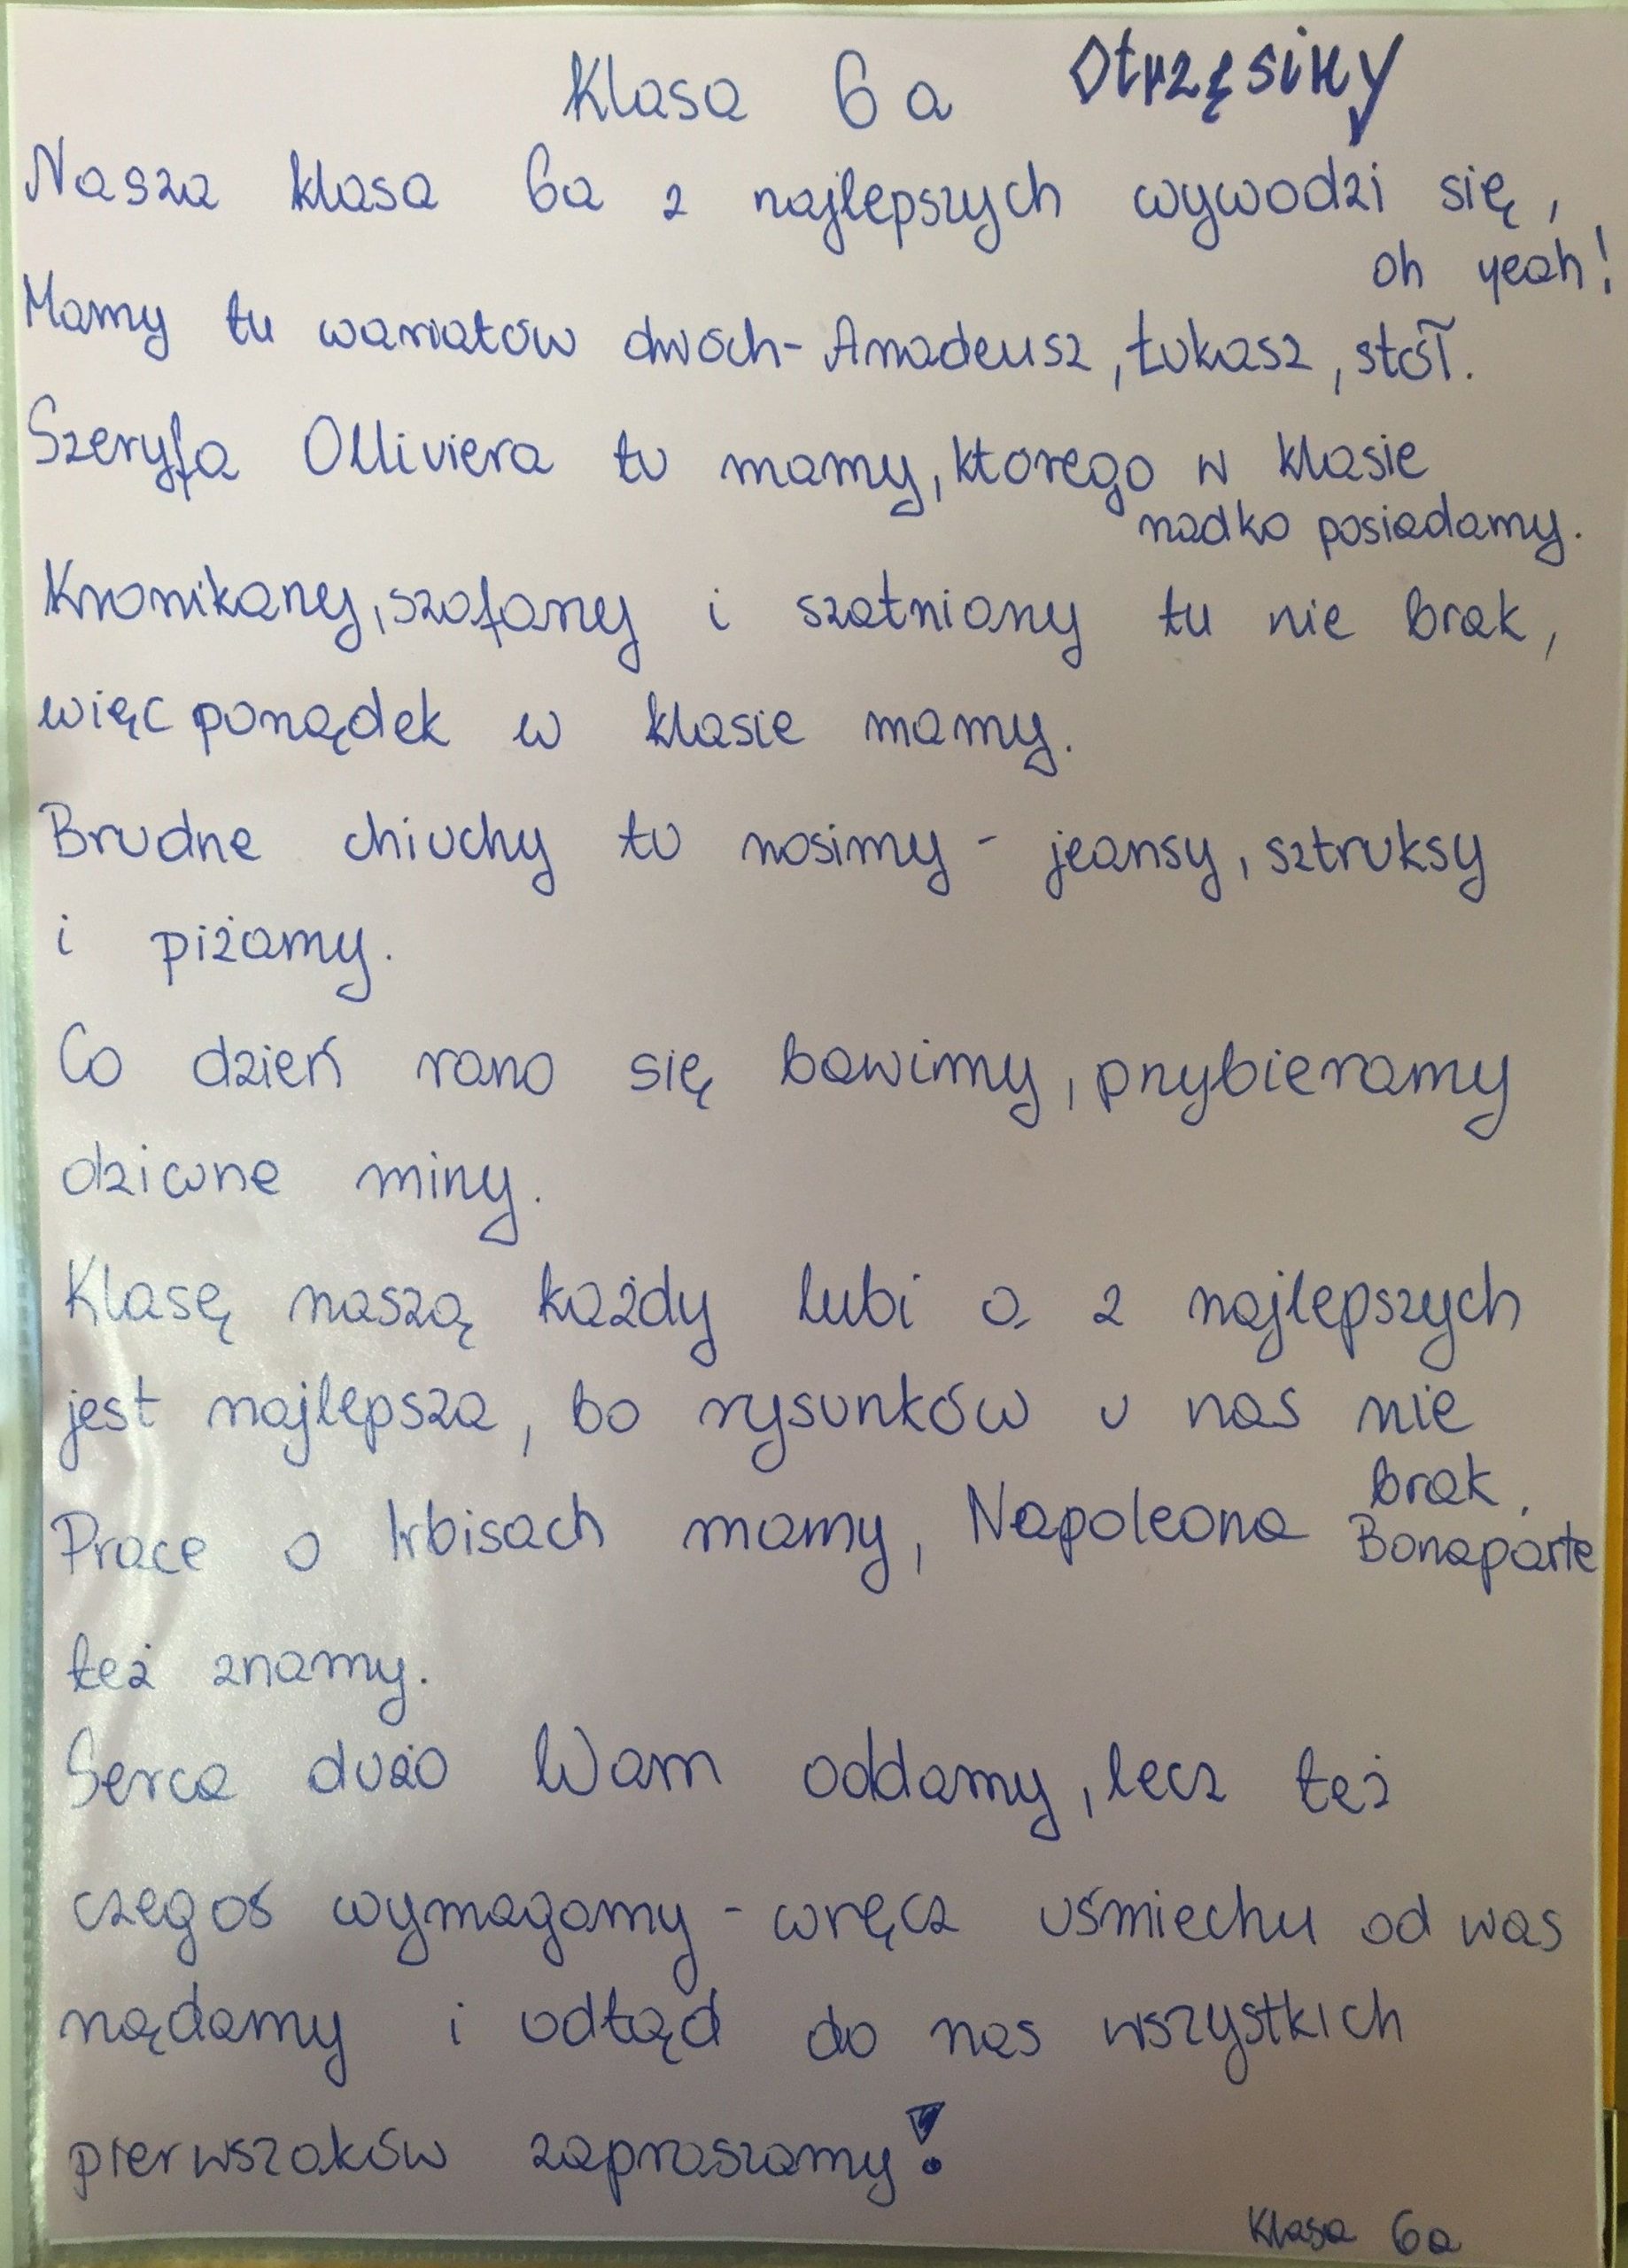 Klasa 6a Otrzęsiny
Nasza klasa 6a z najlepszych wywodzi się,
oh yeah!
Mamy tu wariatów dwóch- Amadeusz, Łukasz, stół.
Szeryfa Olliviera tu mamy, ktorego w klasie
rzadko posiadamy.
Kronikarzy, szafarzy i szatniarzy tu nie brak,
więc porządek w klasie mamy.
Brudne chiuchy tu nosimy - jeansy, sztruksy
i piżamy.
Co dzień rano się bawimy, przybieramy
dziwne miny.
Klasę naszą każdy lubi a z najlepszych
jest najlepsza, bo rysunków u nas nie
brak.
Prace o Irbisach mamy, Napoleona Bonaparte
też znamy.
Serca dużo Wam oddamy, lecz też
czegoś wymagamy - wręcz uśmiechu od was
rządamy i odtąd do nas wszystkich
pierwszaków zapraszamy!
Klasa 6a